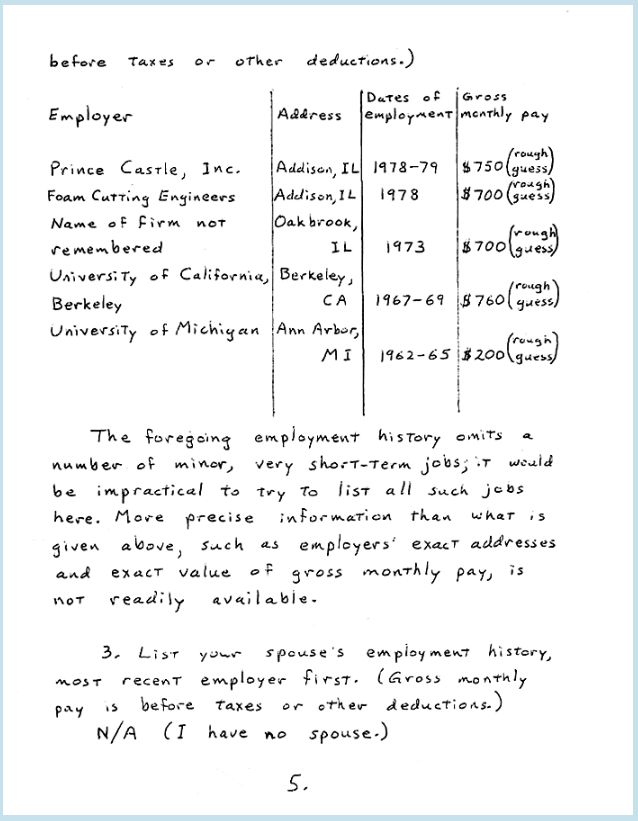 before taxes or other deductions.)
Employer Address Dates of employment Gross monthly pay
Prince Castle, Inc. Addison, IL 1978-79 $750 (rough guess)
Foam Cutting Engineers Addison, IL 1978 $700 (rough guess)
Name of firm not Oakbrook,
remembered IL 1973 $700 (rough guess)
University of California, Berkeley,
Berkeley CA 1967-69 $760 (rough guess)
University of Michigan Ann Arbor,
MI 1962-65 $200 (rough guess)
The foregoing employment history omits a
number of minor, very short-term jobs; it would
be impractical to try to list all such jobs
here. More precise information than what is
given above, such as employers' exact addresses
and exact value of gross monthly pay, is
not readily available.
3. List your spouse's employment history,
most recent employer first. (Gross monthly
pay is before taxes or other deductions.)
N/A (I have no spouse.)
5.